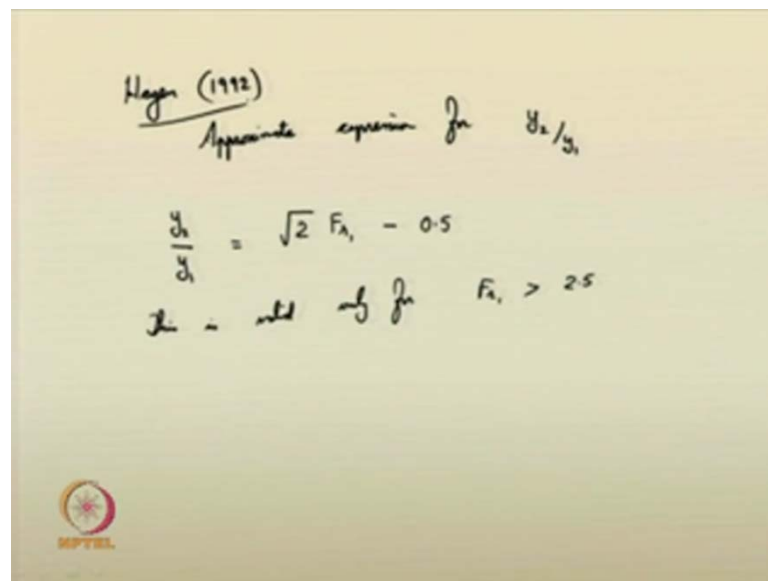 Hager (1992)
Approximate expression for y₂/y₁
y₂/y₁ = √2 Fr₁ - 0.5
This is valid only for Fr₁ > 2.5
NPTEL